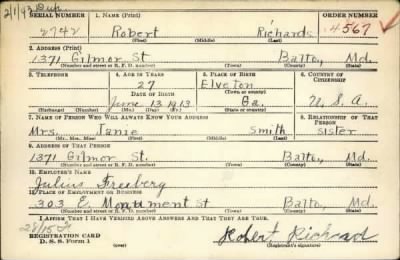 2/1/43 Dup.
SERIAL NUMBER 1. NAME (Print) ORDER NUMBER
2742 Robert Richards 4567
(First) (Middle) (Last)
2. ADDRESS (Print)
1371 Gilmor St Balto, Md.
(Number and street or R. F. D. number) (Town) (County) (State)
3. TELEPHONE 4. AGE IN YEARS 5. PLACE OF BIRTH 6. COUNTRY OF CITIZENSHIP
27 Elveton
DATE OF BIRTH (Town or county)
June 13 1913 Ga. U.S.A.
(Exchange) (No.) (Mo.) (Day) (Yr.) (State or country)
7. NAME OF PERSON WHO WILL ALWAYS KNOW YOUR ADDRESS 8. RELATIONSHIP OF THAT PERSON
Mrs. Janie Smith sister
(Mr., Mrs., Miss) (First) (Middle) (Last)
9. ADDRESS OF THAT PERSON
1371 Gilmor St. Balto, Md.
(Number and street or R. F. D. number) (Town) (County) (State)
10. EMPLOYER'S NAME
Julius Freeberg
11. PLACE OF EMPLOYMENT OR BUSINESS
303 E. Monument St Balto, Md.
(Number and street or R. F. D. number) (Town) (County) (State)
I AFFIRM THAT I HAVE VERIFIED ABOVE ANSWERS AND THAT THEY ARE TRUE.
REGISTRATION CARD
D. S. S. Form 1 (over) Robert Richard
(Registrant's signature)